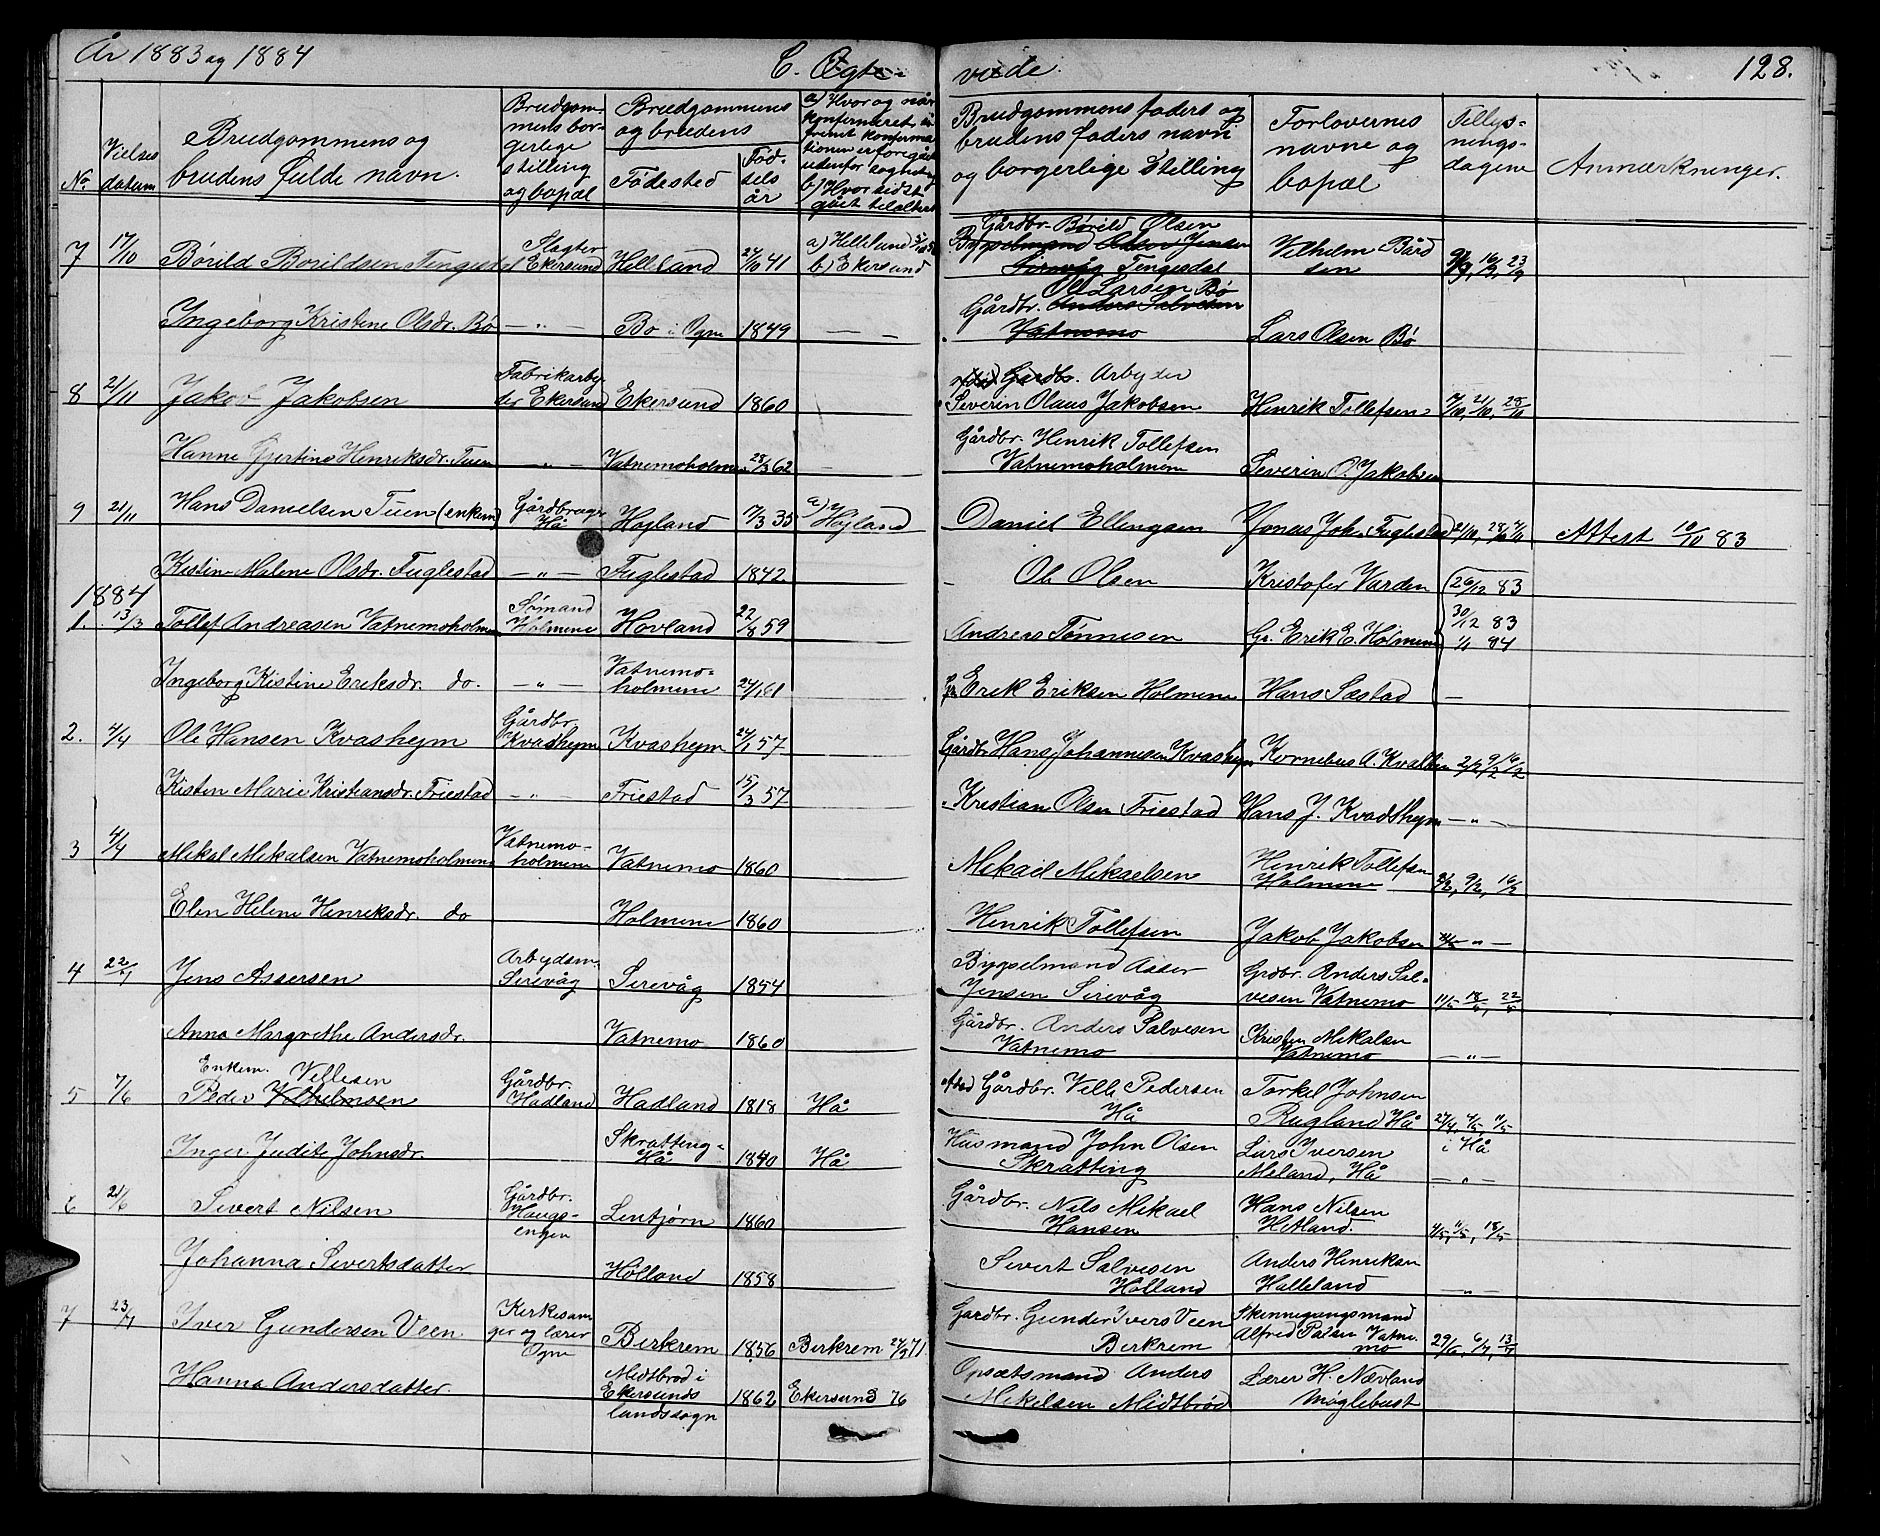 År 1883 og 1884
C. Ægte-
viede.
128.
No.
Vielses datum
Brudgommens og brudens fulde navn.
Brudgommens borgerlige stilling og bopæl
Brudgommens og brudens
Fødested
Fødselsår
a) Hvor og når konfirmeret, såfremt konfirmationen er foregået udenfor sognet
b) Hvor sidst gået til alters
Brudgommens faders og brudens faders navn og borgerlige stilling
Forlovernes navne og bopæl
Tillysningsdagene
Anmærkninger.
7 17/10 Børild Borildsen Tengesdal Slagter Ekersund Helleland 27/10 41 a) Helleland b) Ekersund Gårdbr. Børild Olsen Tengesdal Vilhelm Bårdsen 9/9, 16/9, 23/9
Ingeborg Kristine Olsdr. Bø — " — Bø i Ogne 1849 — — Gårdbr. Ole Larsen Bø Lars Olsen Bø
8 21/11 Jakob Jakobsen Fabrikarbyder Ekersund Ekersund 1860 Arbyder Severin Olaus Jakobsen Henrik Tollefsen 21/10, 28/10
Hanne Gjertine Henriksdr. Tuen — " — Vatnemoholmen 28/3 62 — Gårdbr. Henrik Tollefsen Vatnemoholmen Severin O. Jakobsen
9 21/11 Hans Danielsen Tuen (enkem) Gårdbruger Hå Højland 17/3 35 a) Højland Daniel Ellengsen Jonas Joh. Fuglestad 21/10, 28/10 4/11 Attest 10/10 83
Kistine Malene Olsdr. Fuglestad — " — Fuglestad 1842 — Ole Olsen Kristofer Varden 26/12 83
1884
1. 13/3 Tollef Andreasen Vatnemoholmen Sømand Holmene Hovland 22/8 59 Andreas Tønnesen Gr. Erik E. Holmene 30/12 83 1/1 84
Ingeborg Kistine Eriksdr. do. — " — Vatnemoholmene 24/1 61 Gr. Erik Eriksen Holmene Hans Sæstad —
2. 4/4 Ole Hansen Kvashejm Gårdbr. Kvashejm Kvashejm 24/1 57 Gårdbr. Hans Johannesen Kvashejm Kornelius A. Kvalben 2/2 9/2 16/2
Kisten Marie Kristiansdr. Friestad — " — Friestad 15/3 57 Kristian Olsen Friestad Hans J. Kvadshejm — " —
3 4/4 Mikal Mikalsen Vatnemoholmene Vatnemoholmene Vatnemo 1860 Mikael Mikaelsen Henrik Tollefsen Holmene 2/2, 9/2, 16/2
Elen Helene Henriksdr. do Holmene 1860 Henrik Tollefsen Jakob Jakobsen — " —
4 Jens Assersen Arbydsm. Sirevåg Sirevåg 1854 Bygselmand Asser Jensen Sirevåg Grdbr. Anders Salvesen Vatnemo 11/5 18/5, 22/5
Anna Margrethe Andersdr. Vatnemo 1860 Gårdbr. Anders Salvesen Vatnemo Kristen Mikalsen Vatnemo — " —
5 7/6 Enkem. Peder Villesen Gårdbr. Hadland Hadland 1818 Hå Gårdbr. Ville Pedersen Hå Torkel Johnsen Rugland Hå 27/4, 4/5, 11/5 i Hå
Inger Judite Johnsdr. Skratting- Hå 1840 Hå Husmand John Olsen Skratting Lars Iversen Meland, Hå — " —
6 21/6 Sivert Nilsen Gårdbr. Haugsengen Lentjørn 1860 Gårdbr. Nils Mikael Hansen Hans Nilsen Hetland. 4/5, 11/5, 18/5
Johanna Sivertsdatter Hølland 1858 Sivert Salvesen Hølland Anders Henriksen Halleland — " —
7 23/7 Iver Gundersen Veen Kirkesanger og lærer Ogne Berkrem 1856 Berkrem 24/9 71. Gardbr. Gunder Ivers Veen Berkrem Skinnegangsmand Alfred Palsen Vatnemo 29/6, 6/7, 13/7
Hanna Andersdatter. Midtbrød i Ekersunds landssogn 1862 Ekersund 76 Opsætsmand Anders Mikelsen Midtbrød Lærer H. Nævland Møglebust